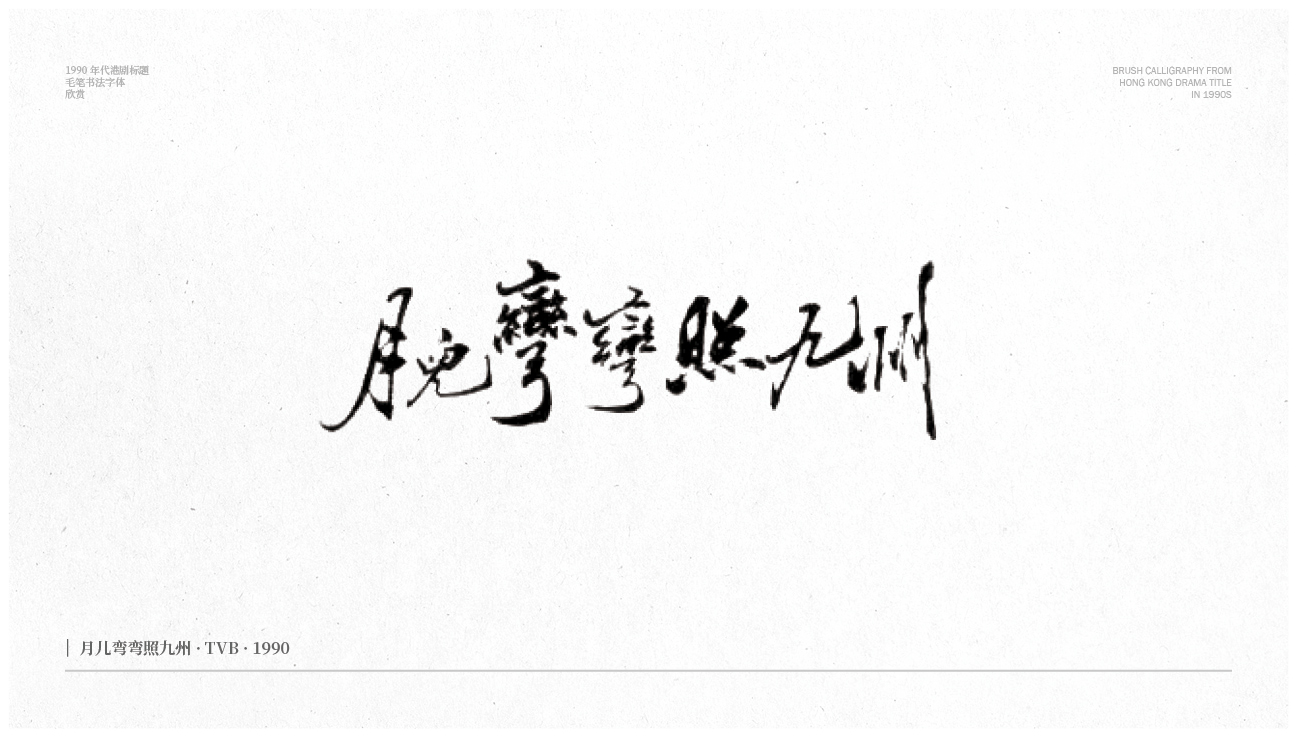 1990 年代港剧标题
毛笔书法字体
欣赏
BRUSH CALLIGRAPHY FROM
HONG KONG DRAMA TITLE
IN 1990S
月兒彎彎照九洲
月儿弯弯照九州 · TVB · 1990